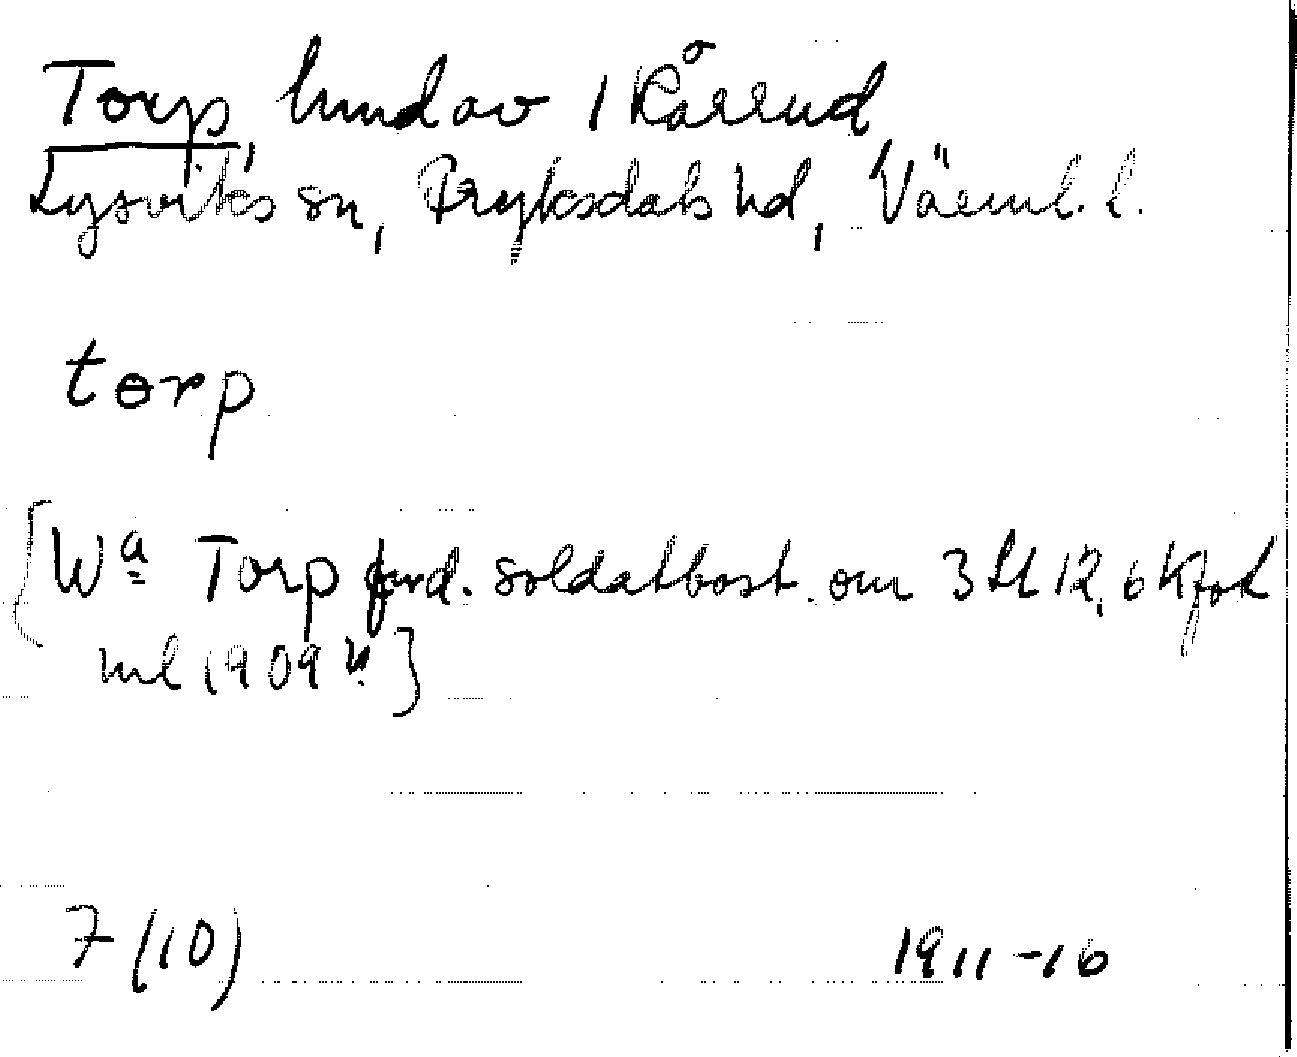 Torp, hmd av 1 Kårrud
Lysviks sn, Fryksdals hd, Värml. l.
torp
[Wª Torp ford. soldatbost. om 3 tl 12, 6 Kfot
ml 1909 ".]
7 (10) 1911-16